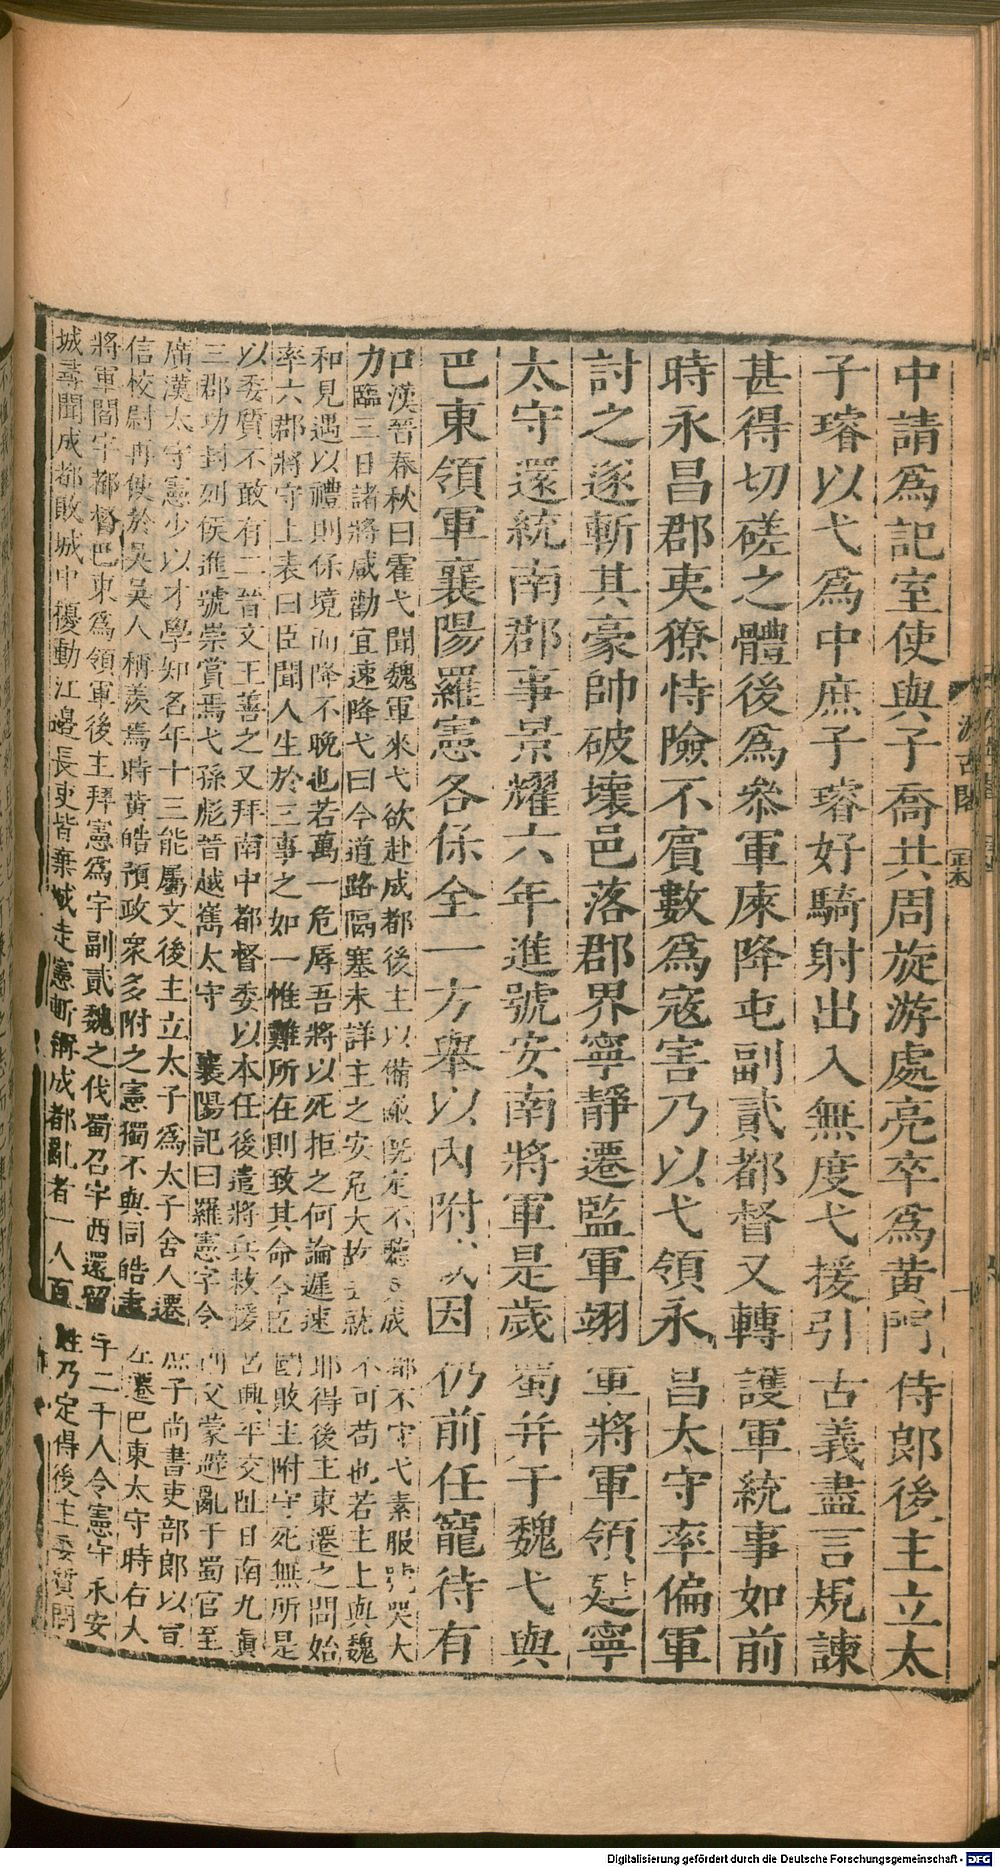 中請爲記室使與子喬共周旋游處亮卒爲黃門侍郎後主立太
子璿以弋爲中庶子璿好騎射出入無度弋援引古義盡言規諫
甚得切磋之體後爲參軍庲降屯副貳都督又轉護軍統事如前
時永昌郡夷獠恃險不賓數爲寇害乃以弋領永昌太守率偏軍
討之遂斬其豪帥破壞邑落郡界寧靜遷監軍翊軍將軍領建寧
太守還統南郡事景耀六年進號安南將軍是歲蜀并于魏弋與
巴東領軍襄陽羅憲各保全一方舉以內附咸因仍前任寵待有
加漢晉春秋曰霍弋聞魏軍來弋欲赴成都後主以備敵既定不聽及成都不守弋素服號哭大
臨三日諸將咸勸宜速降弋曰今道路隔塞未詳主之安危大故去就不可苟也若主上與魏
和見遇以禮則保境而降不晚也若萬一危辱吾將以死拒之何論遲速耶得後主東遷之問始
率六郡將守上表曰臣聞人生於三事之如一惟難所在則致其命今臣國敗主附守死無所是
以委質不敢有二晉文王善之又拜南中都督委以本任後遣將兵救援呂興平交阯日南九眞
三郡功封列侯進號崇賞焉弋孫彪晉越巂太守 襄陽記曰羅憲字令則父蒙避亂于蜀官至
廣漢太守憲少以才學知名年十三能屬文後主立太子爲太子舍人遷庶子尚書吏部郎以宣
信校尉再使於吳吳人稱美焉時黃皓預政衆多附之憲獨不與同皓恚左遷巴東太守時右大
將軍閻宇都督巴東爲領軍後主拜憲爲宇副貳魏之伐蜀召宇西還留宇二千人令憲守永安
城尋聞成都敗城中擾動江邊長吏皆棄城走憲斬稱成都亂者一人百姓乃定得後主委質問
汲古閣
Digitalisierung gefördert durch die Deutsche Forschungsgemeinschaft - DFG